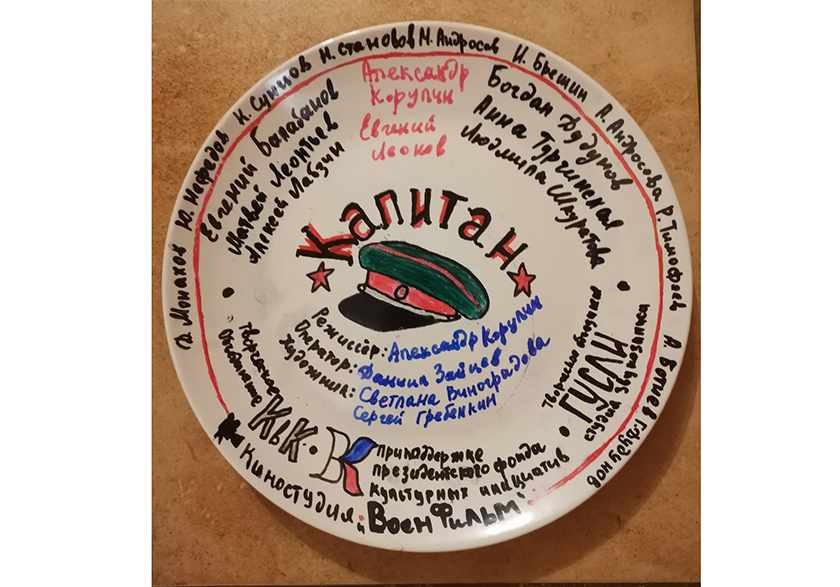 Ю. Нефедов К. Сунцов Н. становов М. Андросов И. Бякшин А. Андросова Р. Тимофеев
Г. Дудунов
Александр
Корупин
Евгений
Леонов
Евгений Балабанов
Матвей Леонтьев
Алексей Лавзин
Богдан Дудунов
Анна Тургинская
Людмила Шкуратова
Капитан
Режиссёр: Александр Корупин
Оператор: Даниил Зайцев
Художник: Светлана Виноградова
Сергей Гребенкин
Творческое
объединение
КиК
Творческое объединение
ГУСЛИ
студия звукозаписи
при поддержке
президентского фонда
культурных инициатив
Киностудия
"ВоенФильм"